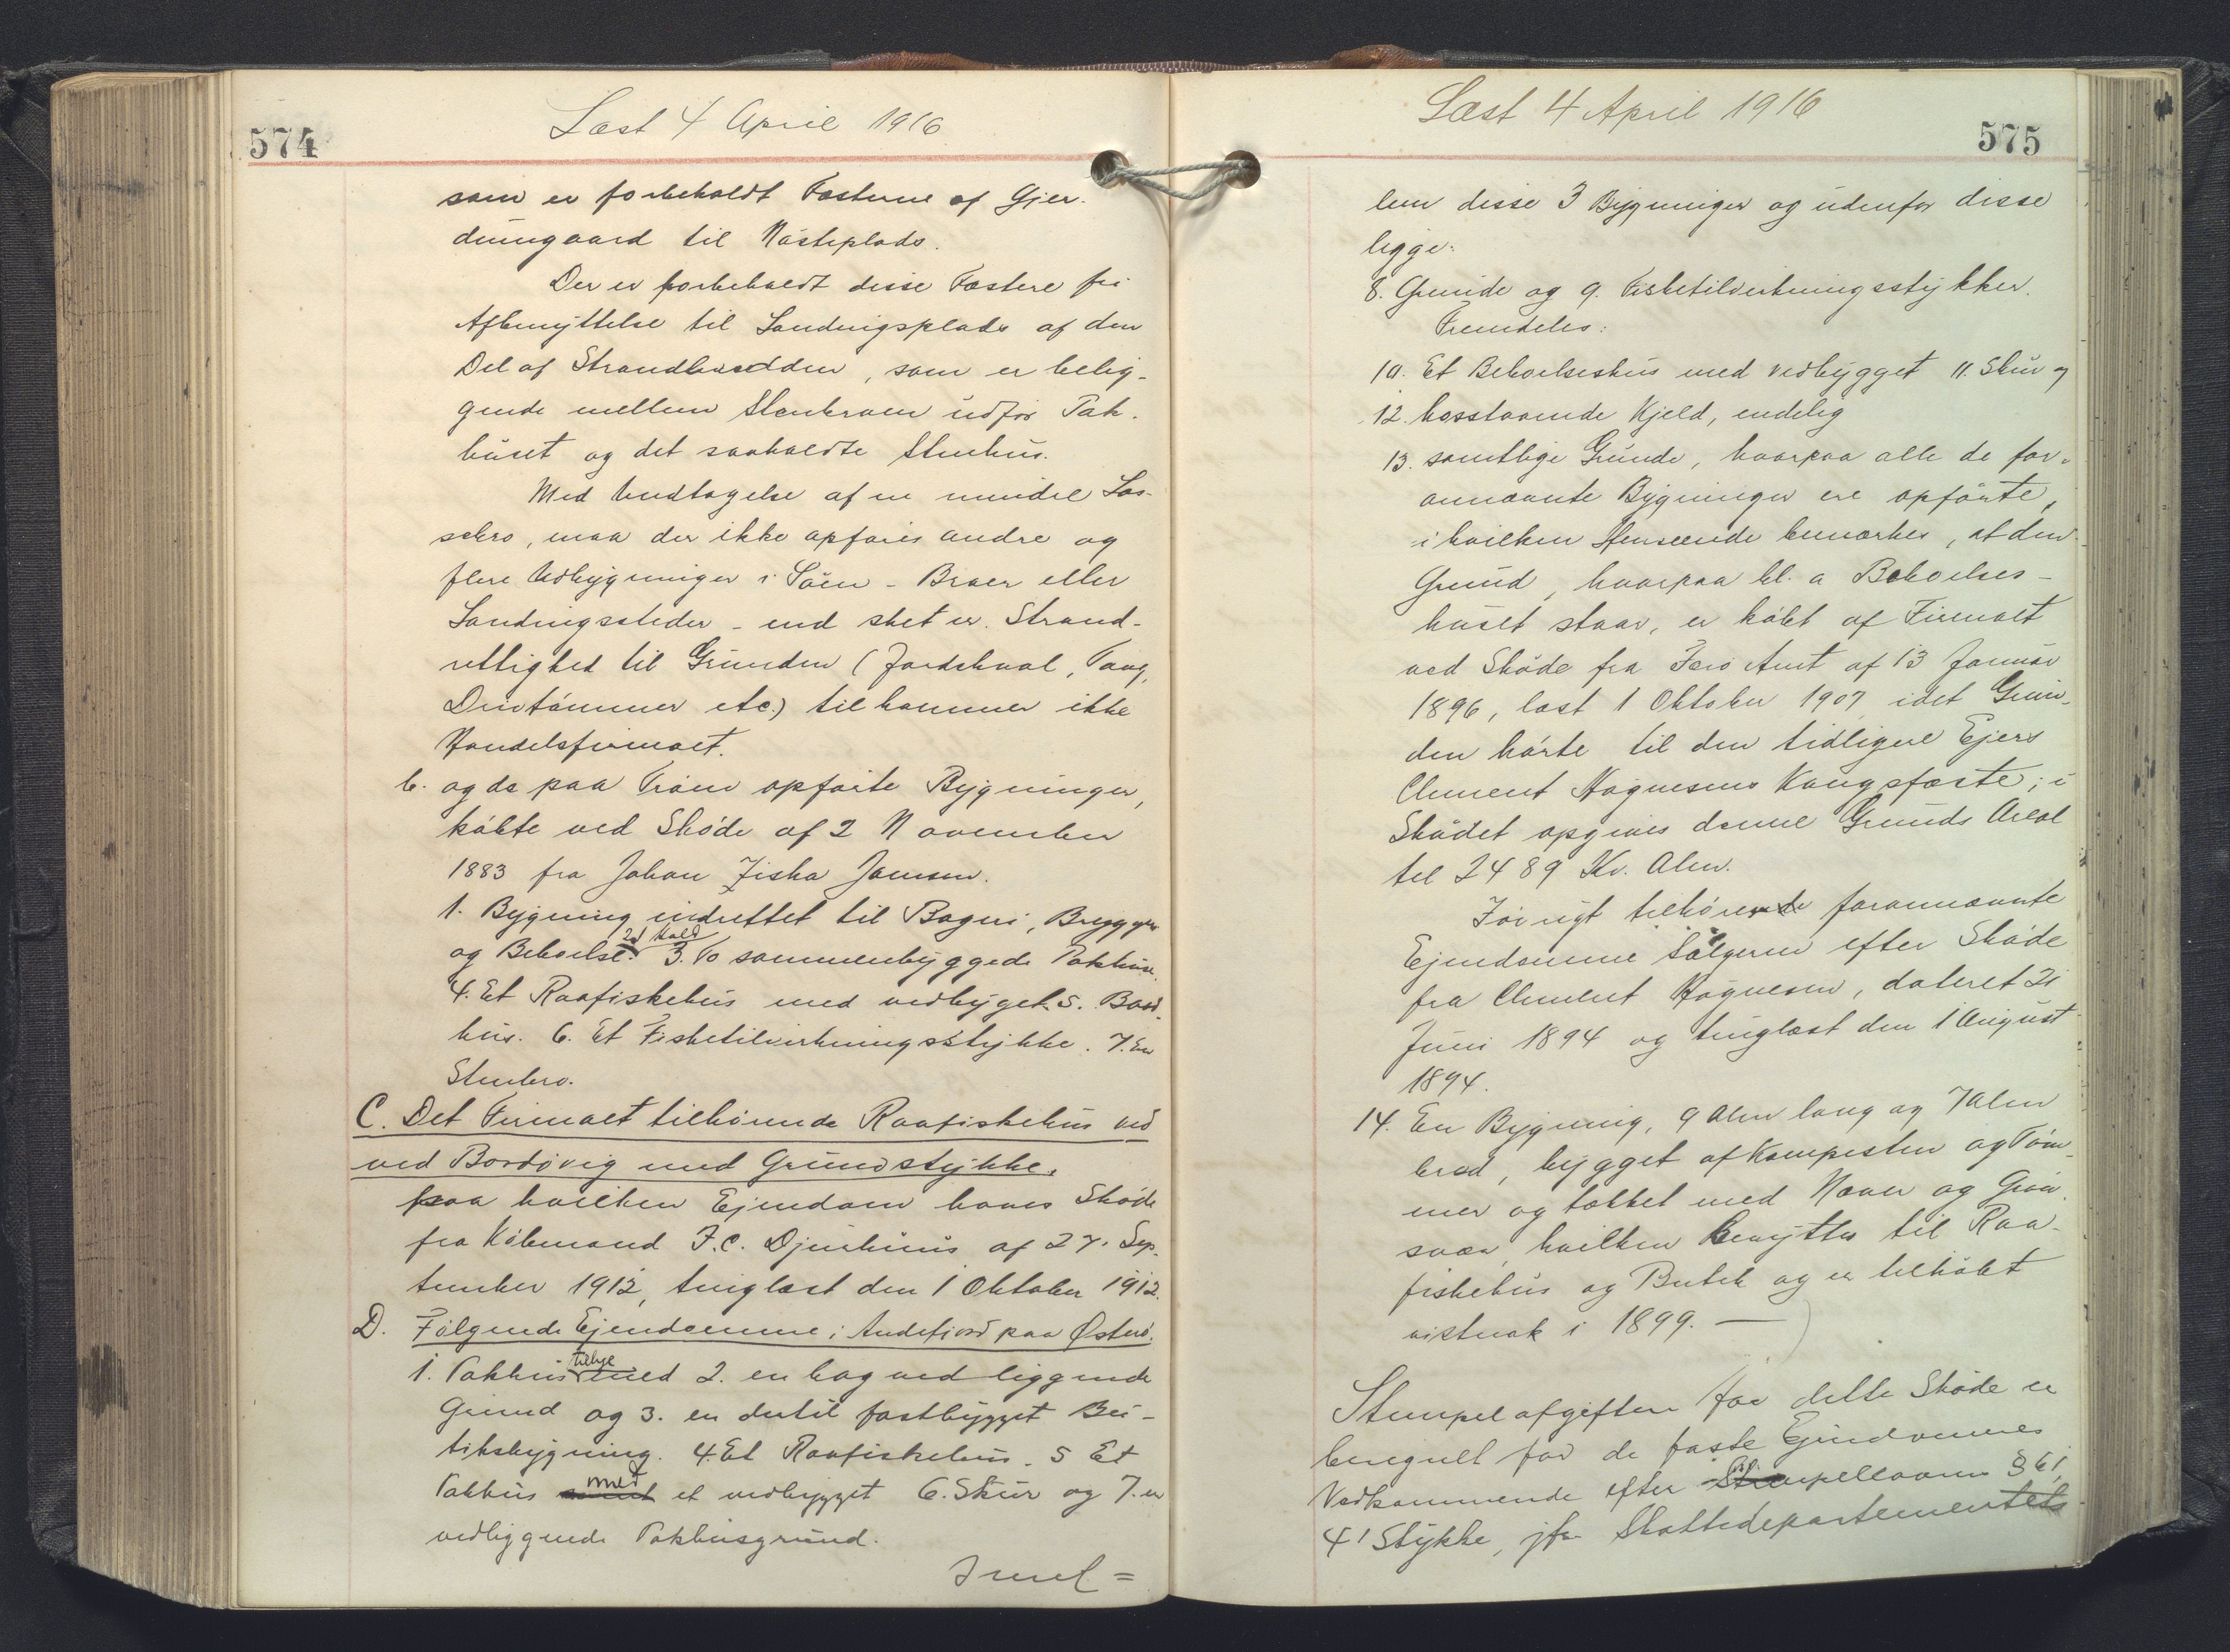 574
Læst 4 April 1916
som er forbeholdt Fæsterne af Gjer-
dumgaard til Nøsteplads.
Der er forbeholdt disse Fæstere fri
Afbenyttelse til Landingsplads af den
Del af Strandbredden, som er belig-
gende mellem Stenbroen udfor Pak-
huset og det saakaldte Stenhus.
Med Undtagelse af en mindre Los-
sebro, maa der ikke opføres andre og
flere Udbygninger i Søen - Broer eller
Landingssteder - end sket er. Strand-
rettighed til Grunden (Jordshval, Tang,
Drivtømmer etc.) tilkommer ikke
Handelsfirmaet.
b. og de paa Fram opførte Bygninger,
købte ved Skøde af 2 November
1883 fra Johan Ziska Jensen.
1. Bygning indrettet til Bageri, Bryggers
og Beboelse. 2d Kald 3. To sammenbyggede Pakhuse.
4. Et Raafiskehus med vedbygget 5. Baad-
hus. 6. Et Fisketilvirkningsstykke. 7. En
Stenbro.
C. Det Firmaet tilhørende Raafiskehus ved
ved Bordøvig med Grundstykke,
paa hvilken Ejendom haves Skøde
fra Købmand J. C. Djurhuus af 27. Sep-
tember 1912, tinglæst den 1 Oktober 1912.
D. Følgende Ejendomme i Andefjord paa Østerø.
1. Pakhus tillige med 2. en bag ved liggende
Grund og 3. en dertil fastbygget Bu-
tiksbygning. 4. Et Raafiskehus. 5 Et
Pakhus samt med et vedbygget 6. Skur og 7. en
vedliggende Pakhusgrund.
Imel=
Læst 4 April 1916
575
lem disse 3 Bygninger og udenfor disse
ligge:
8. Grunde og 9. Fisketilvirkningsstykker.
Fremdeles:
10. Et Beboelseshus med vedbygget 11. Skur og
12. hosstaaende Kjeld, endelig
13. samtlige Grunde, hvorpaa alle de for-
annævnte Bygninger ere opførte,
i hvilken Henseende bemærkes, at den
Grund, hvorpaa bl. a Beboelses-
huset staar, er købt af Firmaet
ved Skøde fra Færø Amt af 13 Januar
1896, læst 1 Oktober 1907 idet Grun-
den hørte til den tidligere Ejers
Clement Høgnesens Kongsfæste; i
Skødet opgives denne Grunds Areal
til 2489 Kv. Alen.
Iøvrigt tilhørende forannævnte
Ejendomme Sælgerne efter Skøde
fra Clement Høgnesen, dateret 21
Juni 1894 og tinglæst den 1 August
1894.
14. En Bygning, 9 Alen lang og 7 Alen
bred, bygget af Kampesten og Tøm-
mer og tækket med Næver og Grøn-
svær, hvilken benyttes til Raa-
fiskehus og Butik og er tilkøbt
vistnok i 1899. —
Stempelafgiften for dette Skøde er
beregnet for de faste Ejendommes
Vedkommende efter Stempellovens § 61,
4' Stykke, jfr. Skattedepartementets